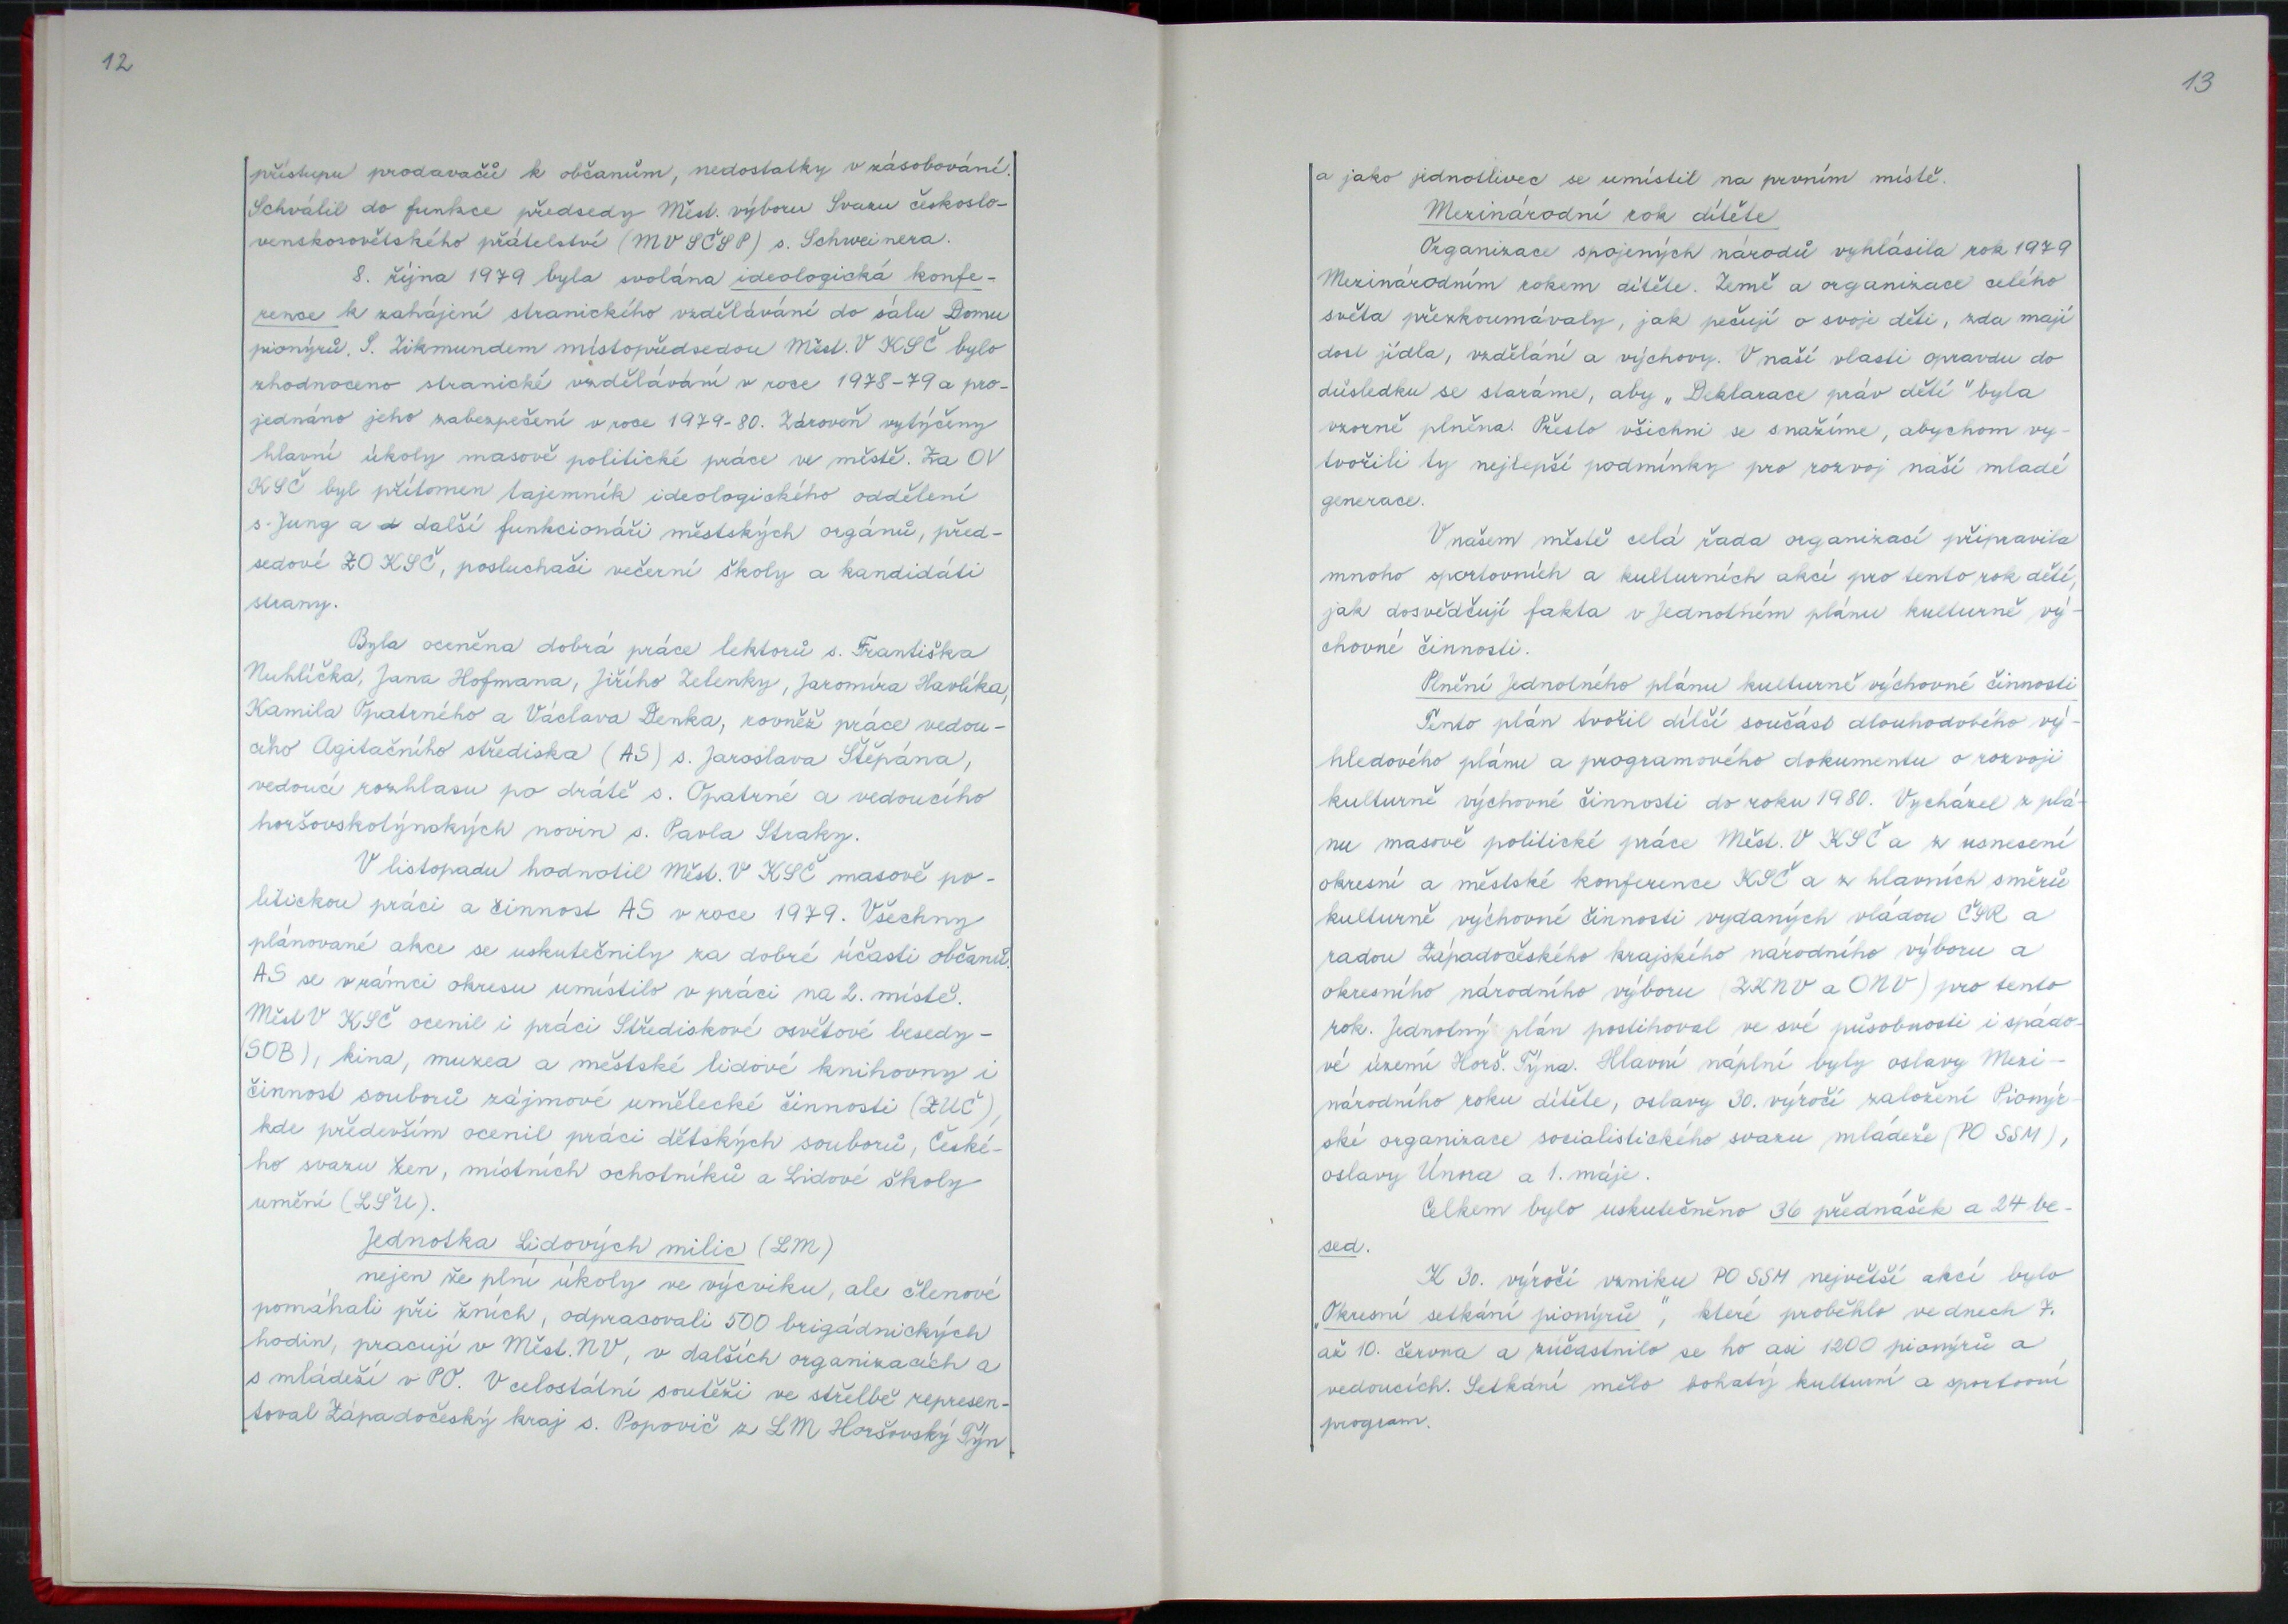 12
přístupu prodavačů k občanům, nedostatky v zásobování.
Schválil do funkce předsedy Měst. výboru Svazu českoslo-
venskosovětského přátelství (MV SČSP) s. Schweinera.
8. října 1979 byla svolána ideologická konfe-
rence k zahájení stranického vzdělávání do sálu Domu
pionýrů. S. Zikmundem místopředsedou Měst. V KSČ bylo
zhodnoceno stranické vzdělávání v roce 1978-79 a pro-
jednáno jeho zabezpečení v roce 1979-80. Zároveň vytýčeny
hlavní úkoly masově politické práce ve městě. Za OV
KSČ byl přítomen tajemník ideologického oddělení
s. Jung a d další funkcionáři městských orgánů, před-
sedové ZO KSČ, posluchači večerní školy a kandidáti
strany.
Byla oceněna dobrá práce lektorů s. Františka
Nuhlíčka, Jana Hofmana, Jiřího Zelenky, Jaromíra Havlíka,
Kamila Opatrného a Václava Denka, rovněž práce vedou-
cího Agitačního střediska (AS) s. Jaroslava Štěpána,
vedoucí rozhlasu po drátě s. Opatrné a vedoucího
horšovskotýnských novin s. Pavla Straky.
V listopadu hodnotil Měst. V KSČ masově po-
litickou práci a činnost AS v roce 1979. Všechny
plánované akce se uskutečnily za dobré účasti občanů.
AS se v rámci okresu umístilo v práci na 2. místě.
Měst V KSČ ocenil i práci Střediskové osvětové besedy-
(SOB), kina, muzea a městské lidové knihovny i
činnost souborů zájmové umělecké činnosti (ZUČ),
kde především ocenil práci dětských souborů, České-
ho svazu žen, místních ochotníků a Lidové školy
umění (LŠU).
Jednotka Lidových milic (LM)
nejen že plní úkoly ve výcviku, ale členové
pomáhali při žních, odpracovali 500 brigádnických
hodin, pracují v Měst. NV, v dalších organizacích a
s mládeží v PO. V celostátní soutěži ve střelbě represen-
toval Západočeský kraj s. Popovič z LM Horšovský Týn
13
a jako jednotlivec se umístil na prvním místě.
Mezinárodní rok dítěte
Organizace spojených národů vyhlásila rok 1979
Mezinárodním rokem dítěte. Země a organizace celého
světa přezkoumávaly, jak pečují o svoje děti, zda mají
dost jídla, vzdělání a výchovy. V naší vlasti opravdu do
důsledku se staráme, aby „Deklarace práv dětí" byla
vzorně plněna. Přesto všichni se snažíme, abychom vy-
tvořili ty nejlepší podmínky pro rozvoj naší mladé
generace.
V našem městě celá řada organizací připravila
mnoho sportovních a kulturních akcí pro tento rok dětí,
jak dosvědčují fakta v Jednotném plánu kulturně vý-
chovné činnosti.
Plnění Jednotného plánu kulturně výchovné činnosti
Tento plán tvořil dílčí součást dlouhodobého vý-
hledového plánu a programového dokumentu o rozvoji
kulturně výchovné činnosti do roku 1980. Vycházel z plá-
nu masově politické práce Měst. V KSČ a z usnesení
okresní a městské konference KSČ a z hlavních směrů
kulturně výchovné činnosti vydaných vládou ČSR a
radou Západočeského krajského národního výboru a
okresního národního výboru (ZKNV a ONV) pro tento
rok. Jednotný plán postihoval ve své působnosti i spádo-
vé území Horš. Týna. Hlavní náplní byly oslavy Mezi-
národního roku dítěte, oslavy 30. výročí založení Pionýr-
ské organizace socialistického svazu mládeže (PO SSM),
oslavy Února a 1. máje.
Celkem bylo uskutečněno 36 přednášek a 24 be-
sed.
K 30. výročí vzniku PO SSM největší akcí bylo
„Okresní setkání pionýrů", které proběhlo ve dnech 7.
až 10. června a zúčastnilo se ho asi 1200 pionýrů a
vedoucích. Setkání mělo bohatý kulturní a sportovní
program.